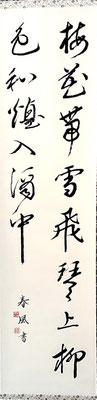 梅花帶雪飛琴上柳
色和煙入酒中
春風書